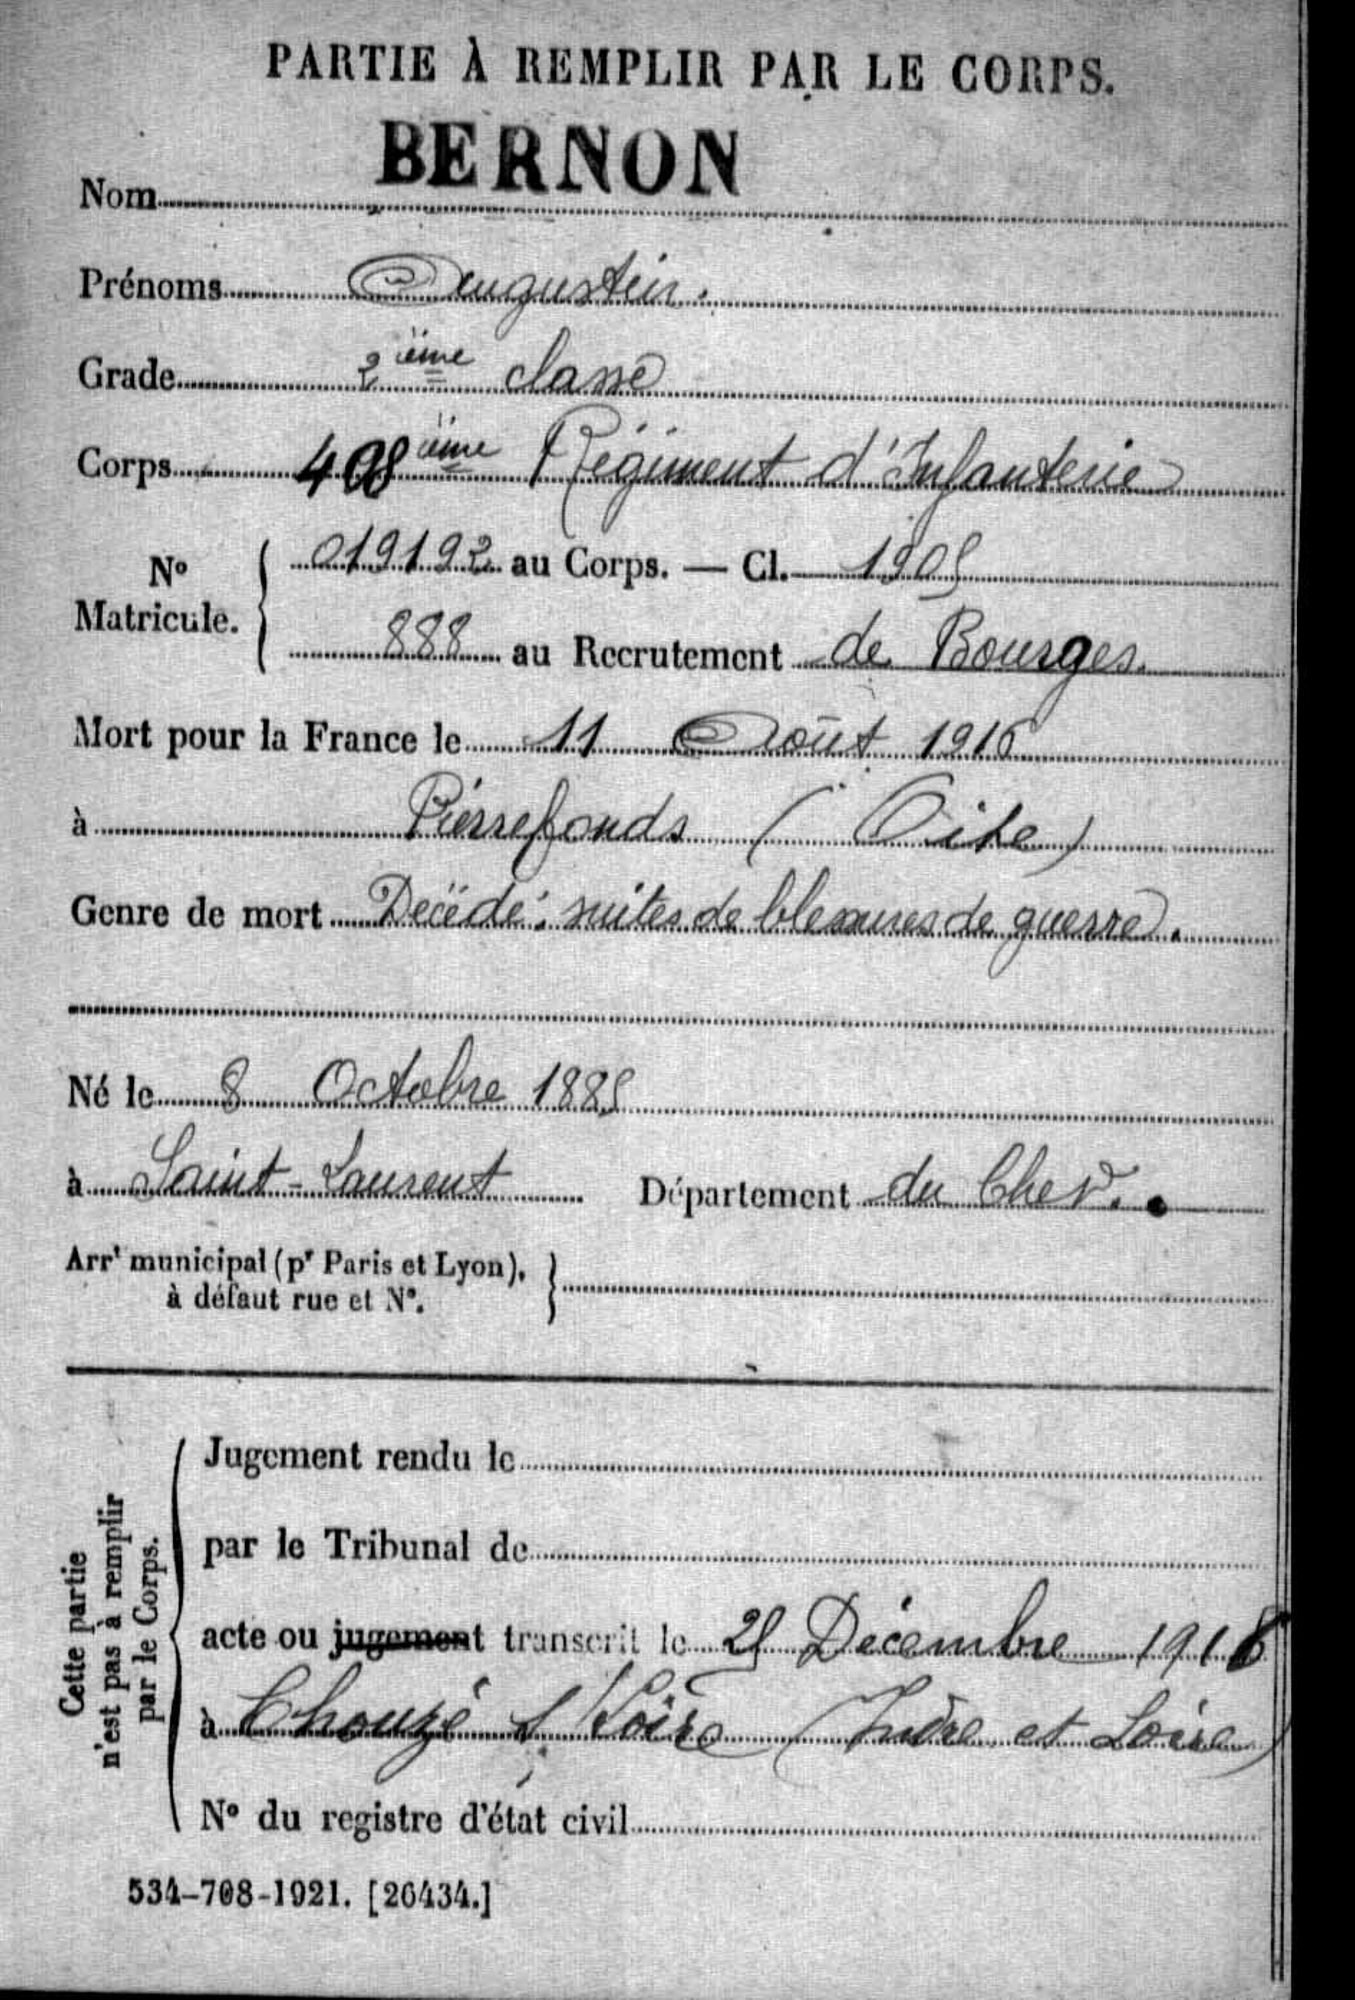 PARTIE À REMPLIR PAR LE CORPS.
Nom BERNON
Prénoms Augustin.
Grade 2ième classe
Corps 408ième Régiment d'Infanterie
N° Matricule. 019192 au Corps. — Cl. 1905
888 au Recrutement de Bourges.
Mort pour la France le 11 Août 1916
à Pierrefonds (Oise)
Genre de mort Décédé suites de blessures de guerre.
Né le 8 Octobre 1885
à Saint-Laurent Département du Cher.
Arrt municipal (pr Paris et Lyon),
à défaut rue et N°.
Cette partie
n'est pas à remplir
par le Corps.
Jugement rendu le
par le Tribunal de
acte ou jugement transcrit le 25 Décembre 1916
à Chouzé s/Loire (Indre et Loire)
N° du registre d'état civil
534-708-1921. [26434.]